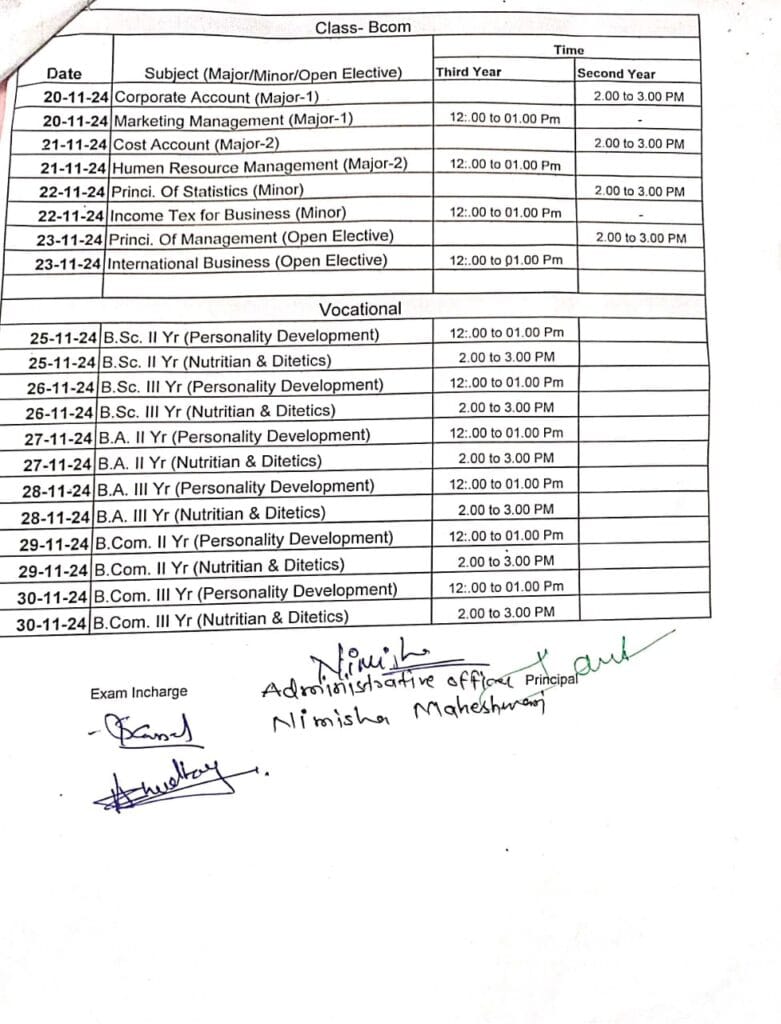 Class- Bcom
Date Subject (Major/Minor/Open Elective) Time
Third Year Second Year
20-11-24 Corporate Account (Major-1) 2.00 to 3.00 PM
20-11-24 Marketing Management (Major-1) 12:.00 to 01.00 Pm -
21-11-24 Cost Account (Major-2) 2.00 to 3.00 PM
21-11-24 Humen Resource Management (Major-2) 12:.00 to 01.00 Pm
22-11-24 Princi. Of Statistics (Minor) 2.00 to 3.00 PM
22-11-24 Income Tex for Business (Minor) 12:.00 to 01.00 Pm -
23-11-24 Princi. Of Management (Open Elective) 2.00 to 3.00 PM
23-11-24 International Business (Open Elective) 12:.00 to 01.00 Pm
Vocational
25-11-24 B.Sc. II Yr (Personality Development) 12:.00 to 01.00 Pm
25-11-24 B.Sc. II Yr (Nutritian & Ditetics) 2.00 to 3.00 PM
26-11-24 B.Sc. III Yr (Personality Development) 12:.00 to 01.00 Pm
26-11-24 B.Sc. III Yr (Nutritian & Ditetics) 2.00 to 3.00 PM
27-11-24 B.A. II Yr (Personality Development) 12:.00 to 01.00 Pm
27-11-24 B.A. II Yr (Nutritian & Ditetics) 2.00 to 3.00 PM
28-11-24 B.A. III Yr (Personality Development) 12:.00 to 01.00 Pm
28-11-24 B.A. III Yr (Nutritian & Ditetics) 2.00 to 3.00 PM
29-11-24 B.Com. II Yr (Personality Development) 12:.00 to 01.00 Pm
29-11-24 B.Com. II Yr (Nutritian & Ditetics) 2.00 to 3.00 PM
30-11-24 B.Com. III Yr (Personality Development) 12:.00 to 01.00 Pm
30-11-24 B.Com. III Yr (Nutritian & Ditetics) 2.00 to 3.00 PM
Nimisha
Exam Incharge Administrative officer Principal
Nimisha Maheshwari